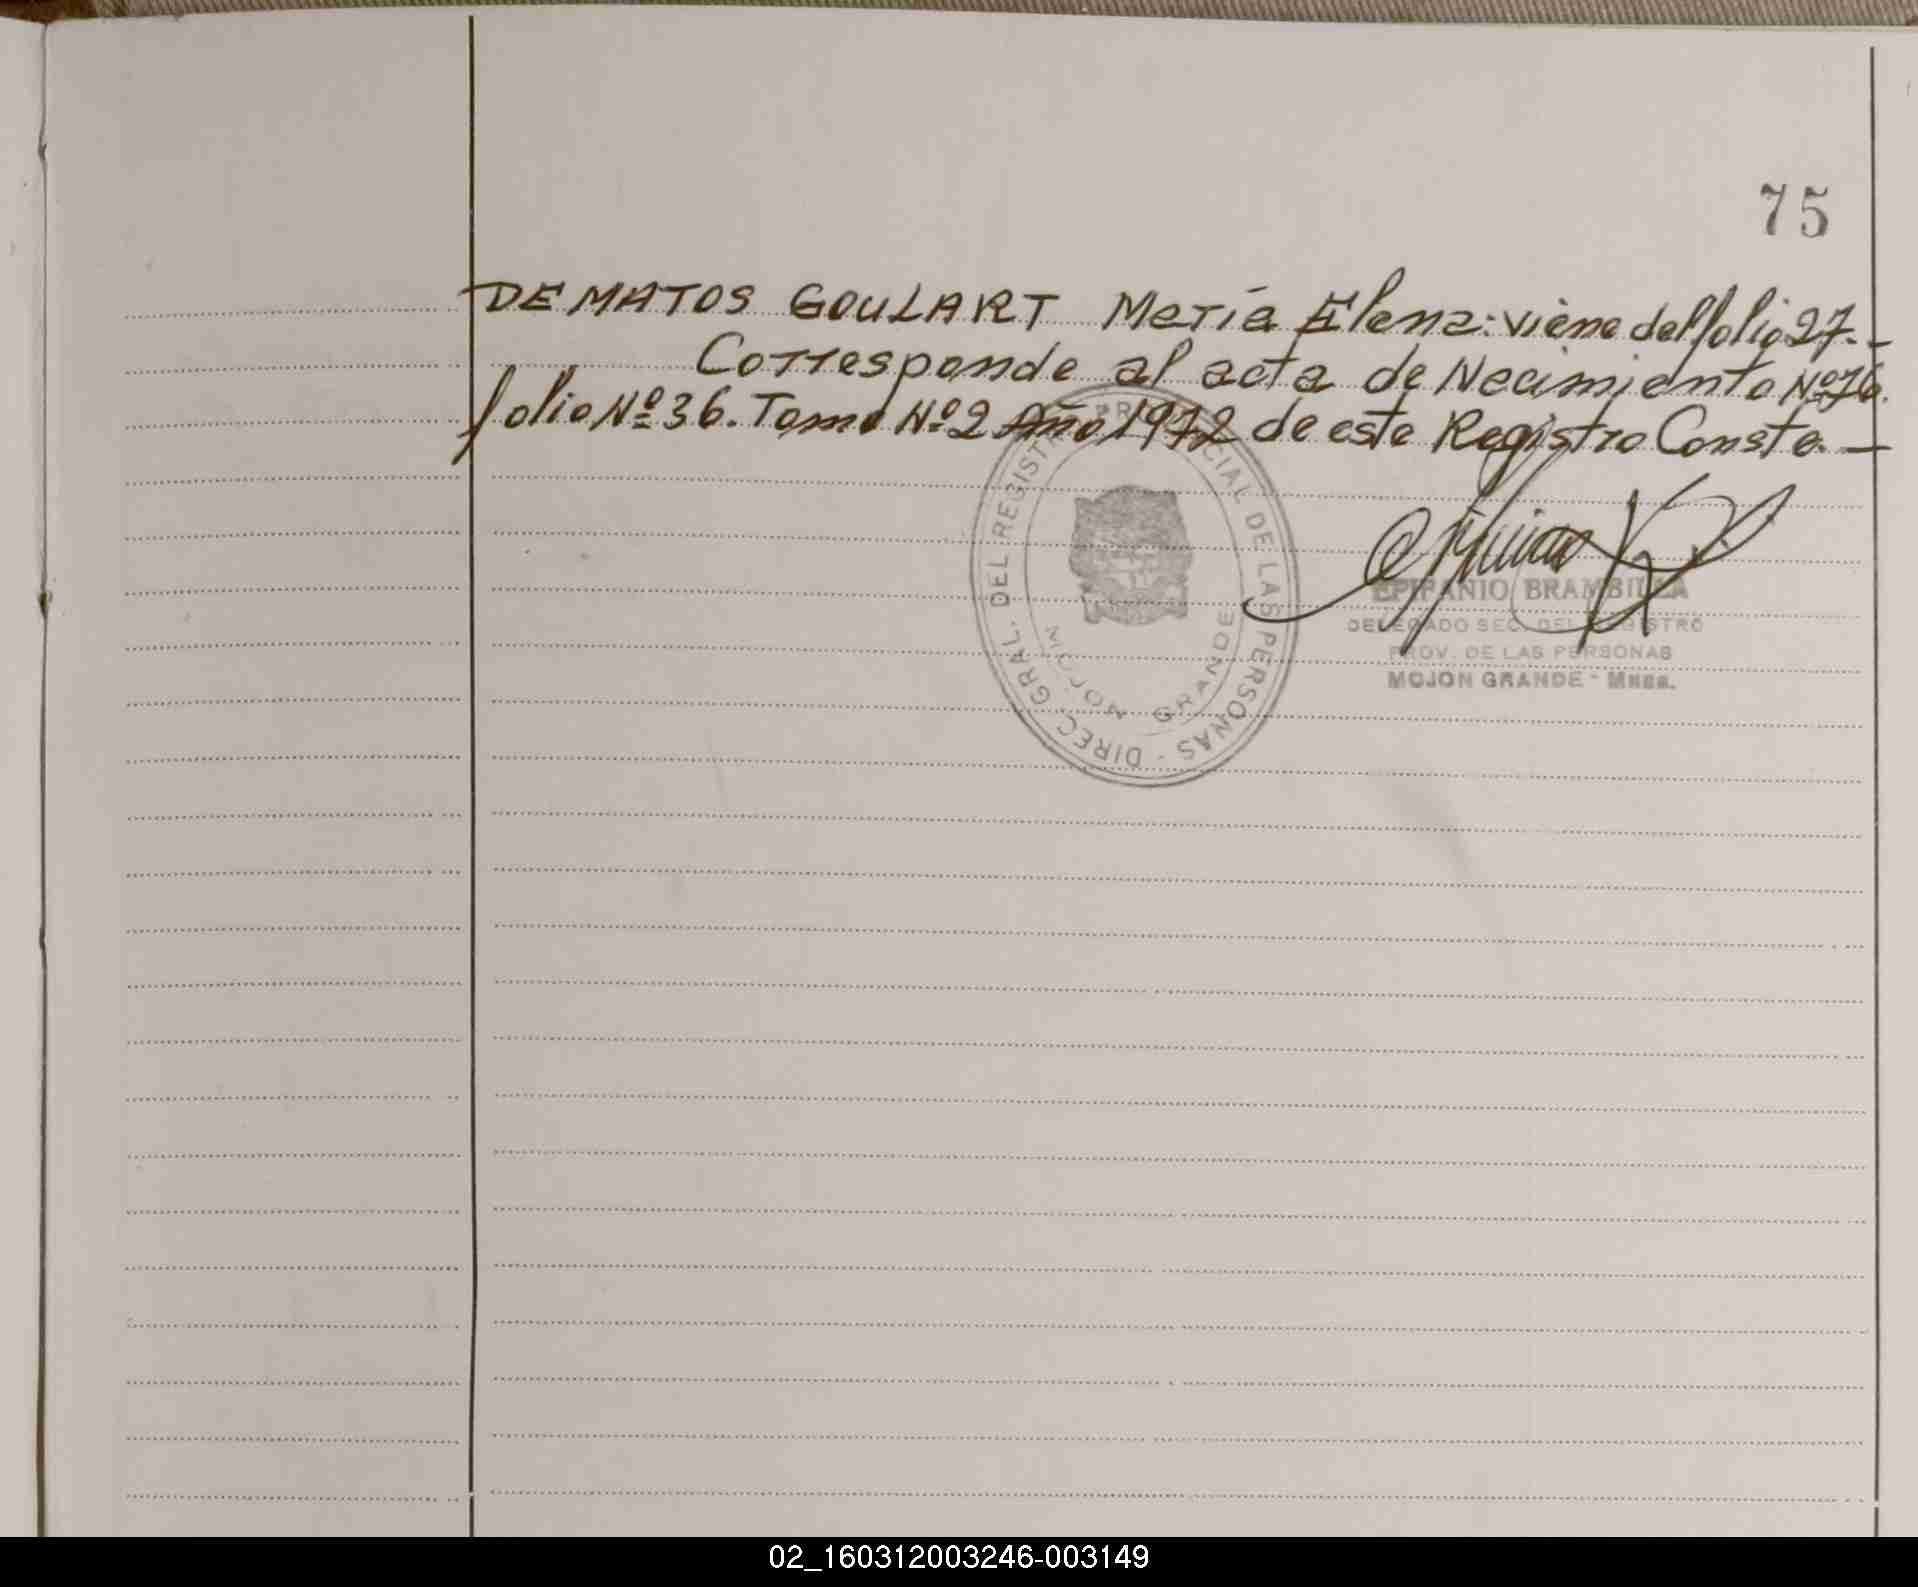 75
DE MATOS GOULART María Elena: viene del folio 27.-
Corresponde al acta de Nacimiento Nº 76.
folio Nº 36. Tomo Nº 2 Año 1972 de este Registro Conste.—
DIREC. GRAL. DEL REGISTRO PROVINCIAL DE LAS PERSONAS -
MOJON GRANDE
EPIFANIO BRAMBILLA
DELEGADO SEC. DEL REGISTRO
PROV. DE LAS PERSONAS
MOJON GRANDE - Mnes.
02_160312003246-003149